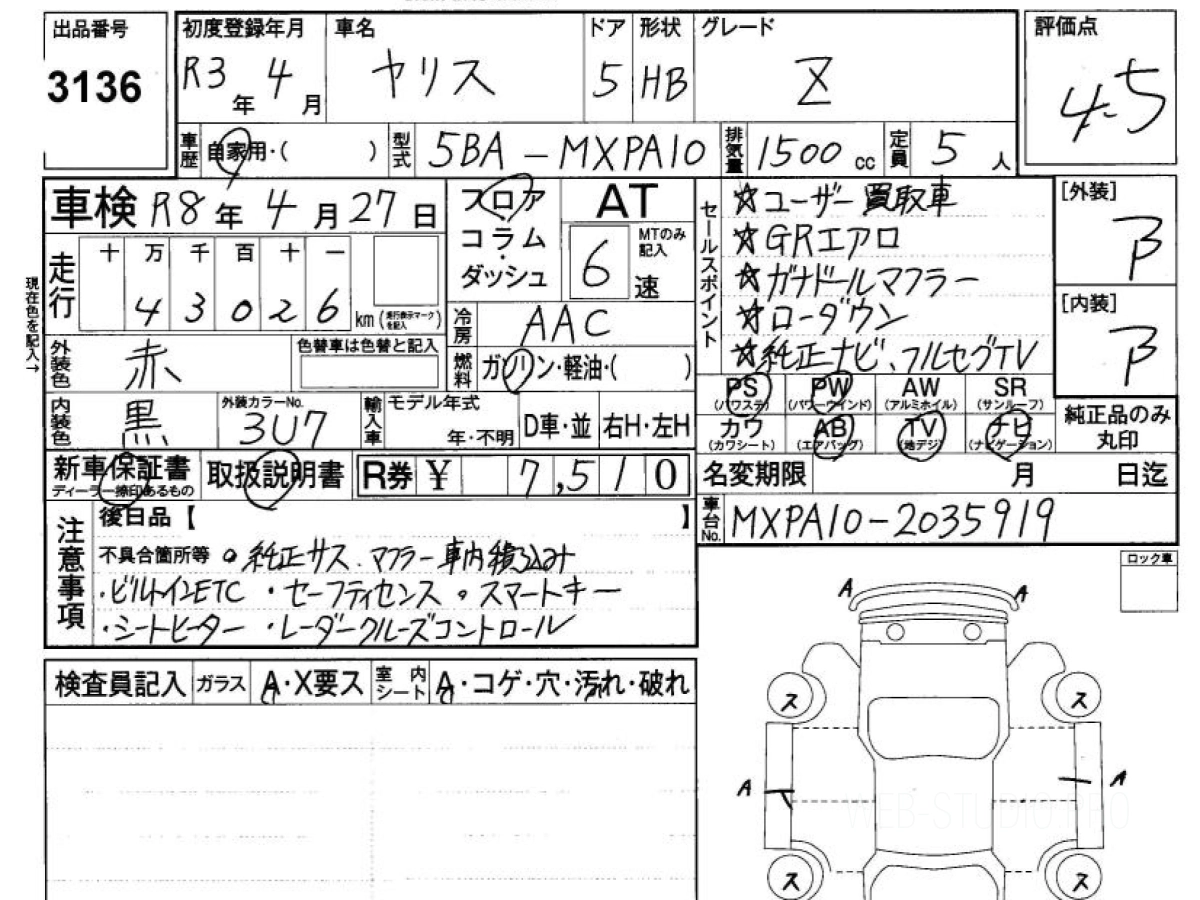 出品番号
3136
初度登録年月
R3年 4月
車名
ヤリス
ドア
5
形状
HB
グレード
Z
評価点
4.5
車歴
自家用・( )
型式
5BA-MXPA10
排気量
1500 cc
定員
5人
車検 R8年 4月 27日
フロア
コラム
・
ダッシュ
AT
6速
MTのみ記入
セールスポイント
☆ユーザー買取車
☆GRエアロ
☆ガナドールマフラー
☆ローダウン
☆純正ナビ、フルセグTV
[外装]
B
[内装]
B
現在色を記入→
走行
十 万 千 百 十 一
4 3 0 2 6 km(走行表示マークを記入)
冷房
AAC
燃料
ガソリン・軽油・( )
外装色
赤
色替車は色替と記入
内装色
黒
外装カラーNo.
3U7
輸入車
モデル年式
年・不明
D車・並
右H・左H
PS(パワステ)
PW(パワーウインド)
AW(アルミホイル)
SR(サンルーフ)
カワ(カワシート)
AB(エアバッグ)
TV(地デジ)
ナビ(ナビゲーション)
純正品のみ
丸印
新車保証書
ディーラー捺印あるもの
取扱説明書
R券 ¥ 7,510
名変期限 月 日迄
車台No.
MXPA10-2035919
注意事項
後日品【 】
不具合箇所等 。純正サス、マフラー車内積込み
・ビルトインETC ・セーフティセンス 。スマートキー
・シートヒーター ・レーダークルーズコントロール
ロック車
検査員記入
ガラス
A・X要ス
室内シート
A・コゲ・穴・汚れ・破れ
A
A
ス
ス
A
A
ス
ス
WEB-STUDIO.PRO